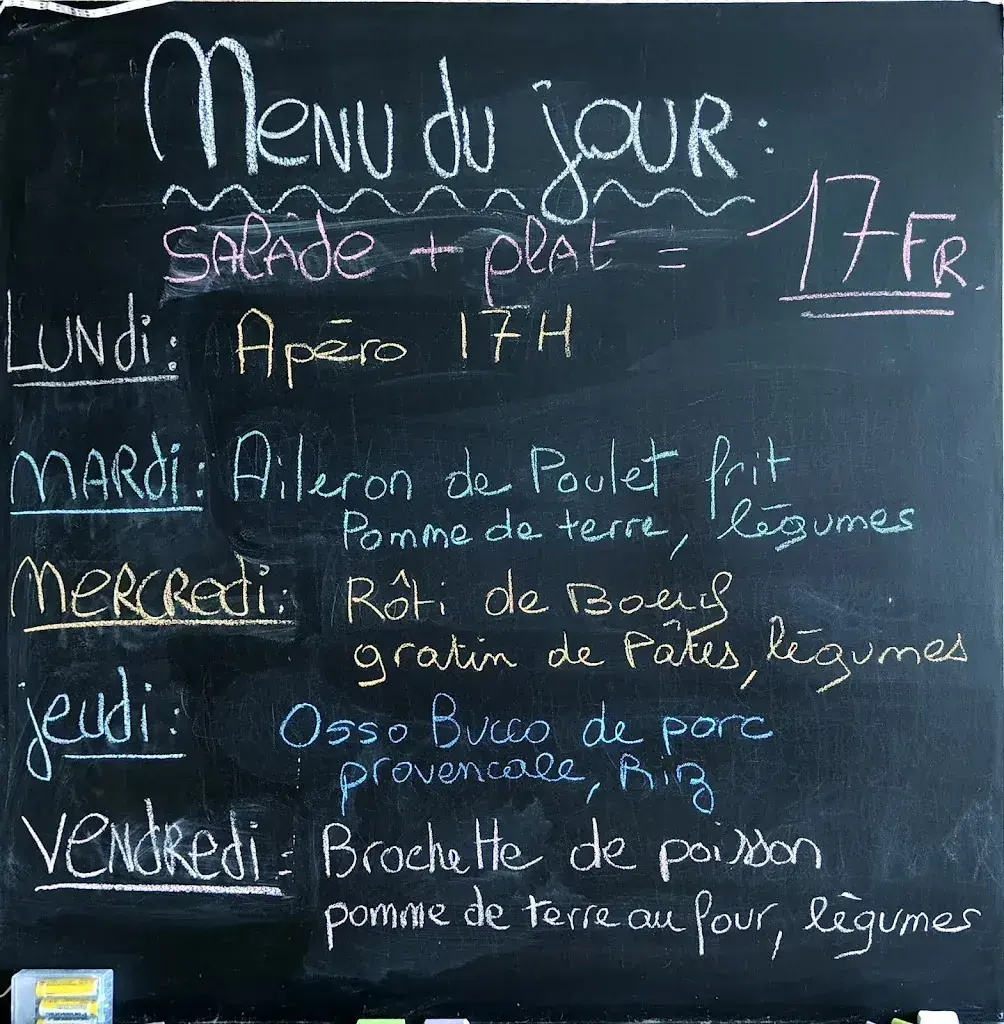 Menu du jour :
Salade + plat = 17 FR.
Lundi : Apéro 17H
Mardi : Aileron de Poulet frit
Pomme de terre, légumes
Mercredi : Rôti de Boeuf
gratin de Pâtes, légumes
jeudi : Osso Bucco de porc
provencale, Riz
Vendredi : Brochette de poisson
pomme de terre au four, légumes